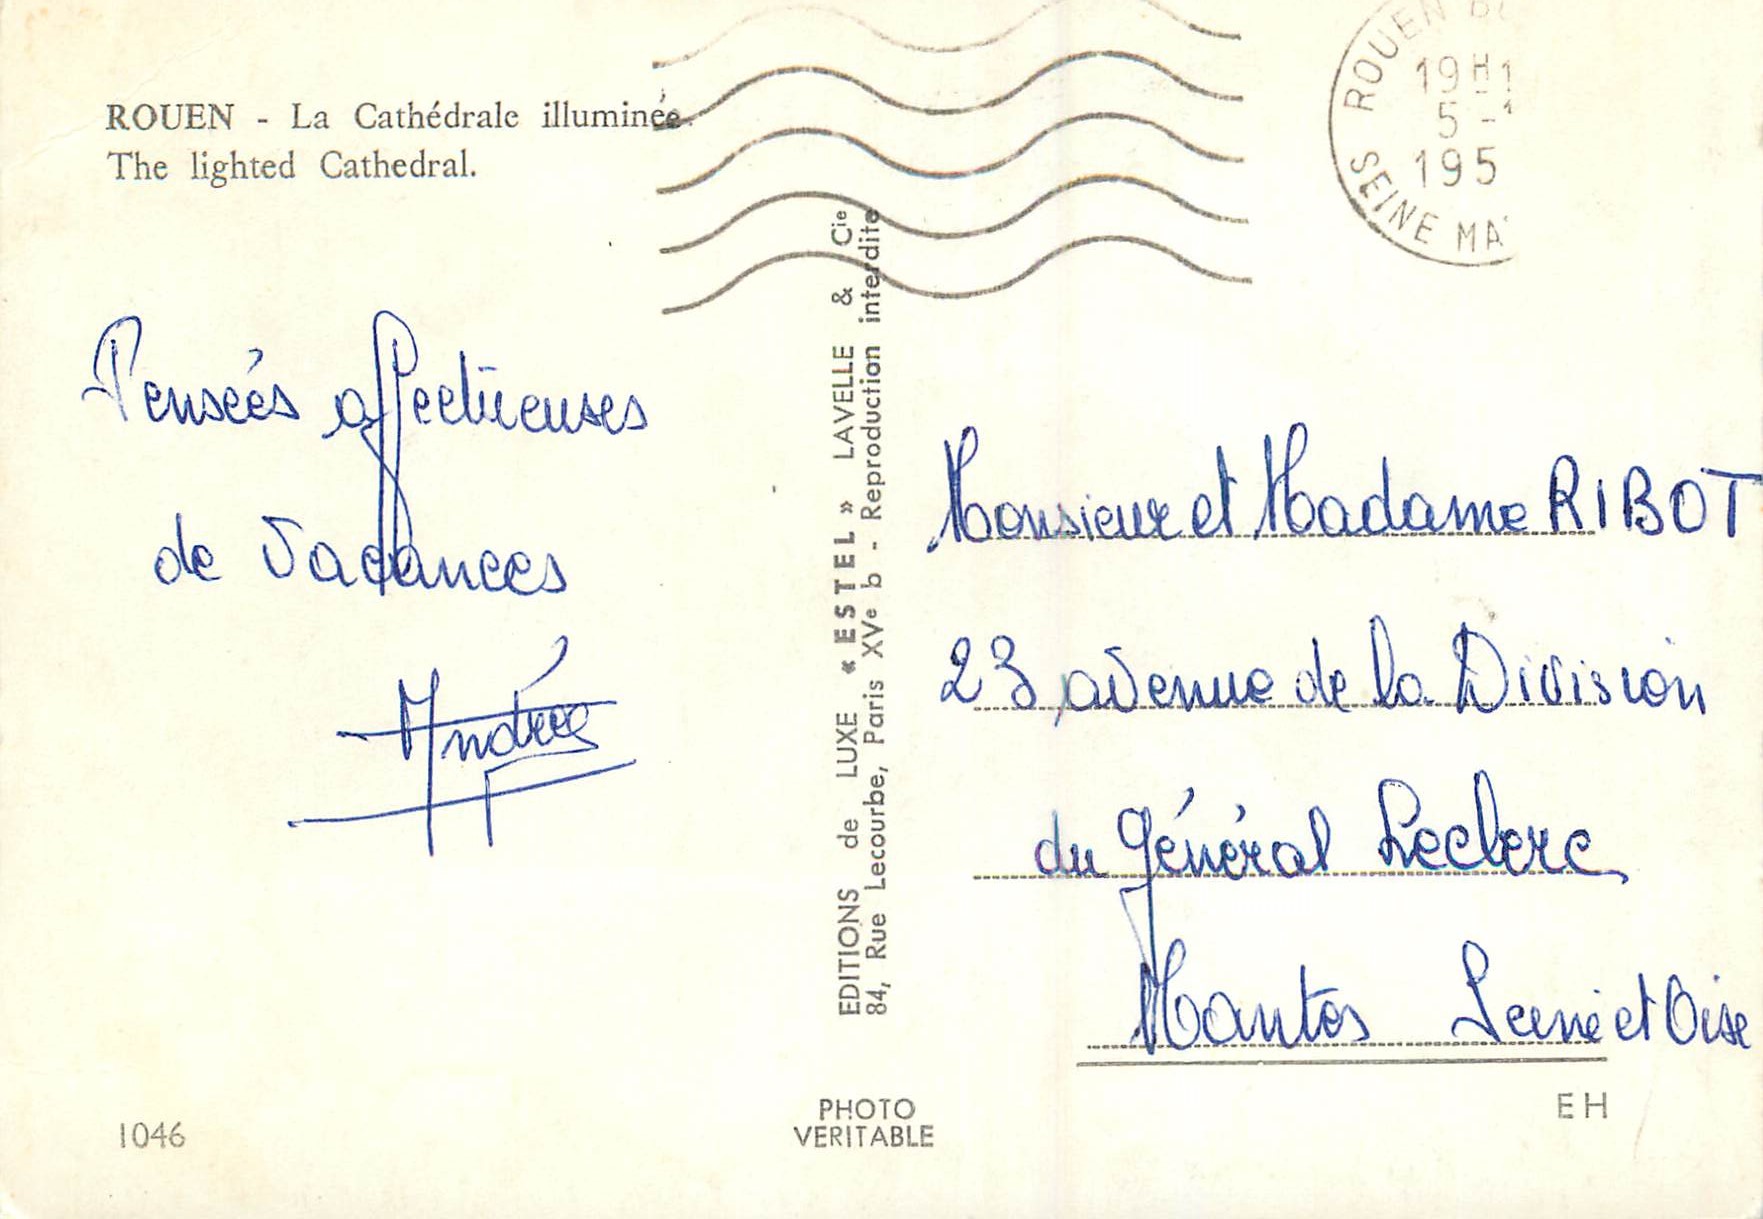 ROUEN - La Cathédrale illuminée.
The lighted Cathedral.
Pensées affectueuses
de Vacances
Andrée
EDITIONS de LUXE « ESTEL » LAVELLE & Cie
84, Rue Lecourbe, Paris XVe b - Reproduction interdite
ROUEN
19H1
5 -
195
SEINE MA
Monsieur et Madame RIBOT
23, avenue de la Division
du Général Leclerc
Mantes Seine et Oise
1046
PHOTO
VERITABLE
EH